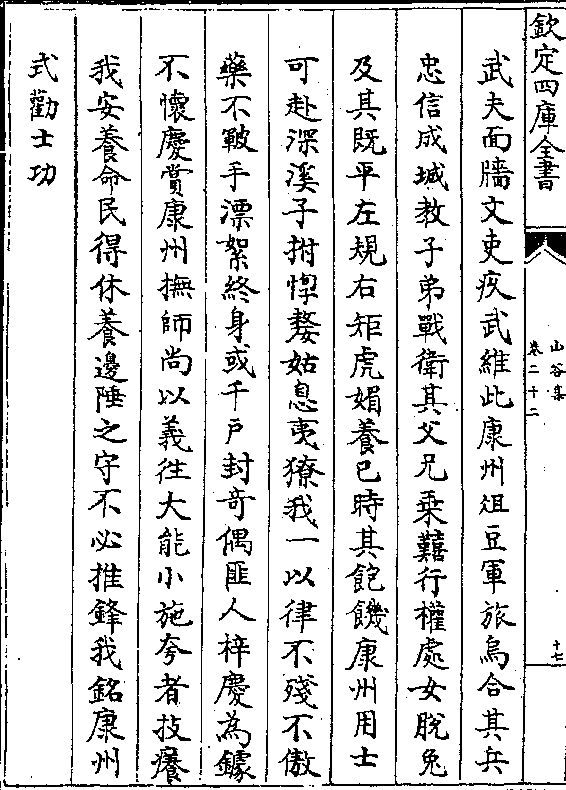 欽定四庫全書
山谷集
卷二十二
十七
武夫面牆文吏疾武維此康州俎豆軍旅烏合其兵
忠信成城教子弟戰衛其父兄乗囏行權處女脫兔
及其既平左規右矩虎媚養己時其飽饑康州用士
可赴深溪子拊惸嫠姑息夷獠我一以律不殘不傲
藥不皸手漂絮終身或千戸封奇偶匪人梓慶為鐻
不懷慶賞康州撫師尚以義往大能小施夸者技癢
我安養命民得休養邊陲之守不必推鋒我銘康州
式勸士功